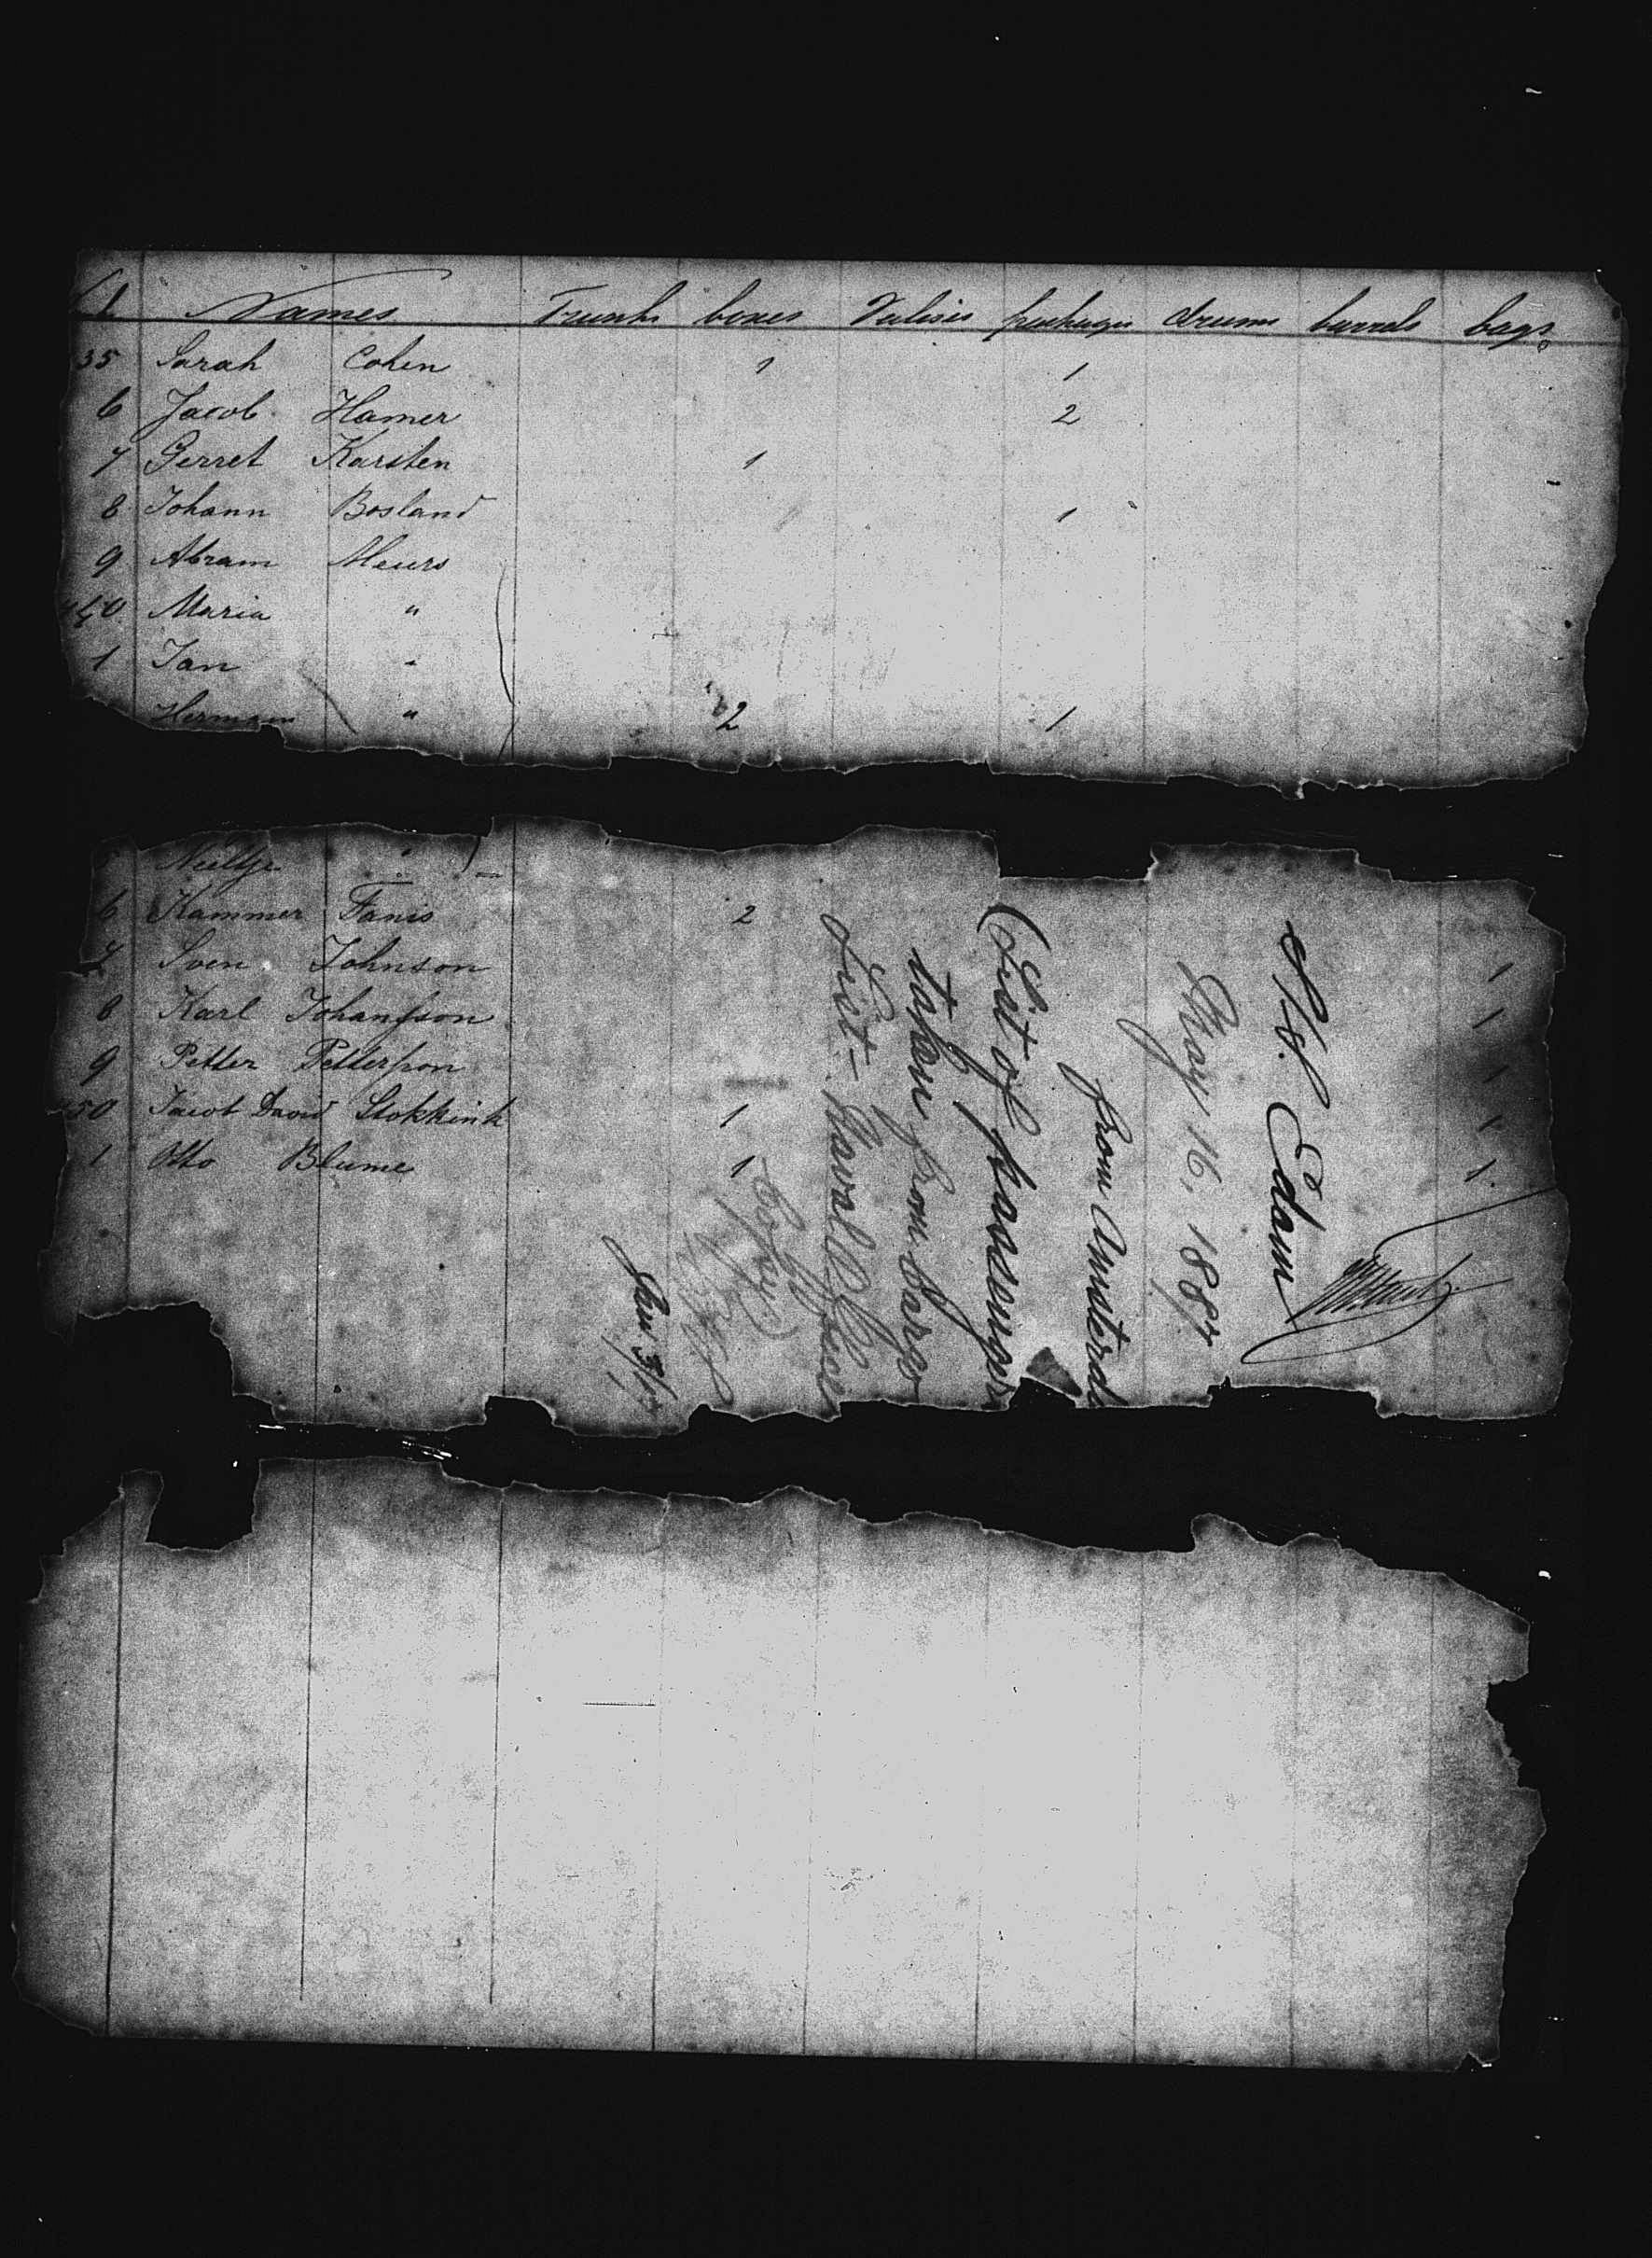 Names Trunks boxes Valises packages drums barrels bags
35 Sarah Cohen 1 1
6 Jacob Hamer 2
7 Gerret Karsten 1
8 Johann Bosland 1
9 Abram Meurs
40 Maria "
1 Jan "
Hermann " 2 1
Neeltje "
6 Kammer Fanis 2
7 Sven Johnson 1
8 Karl Johansson 1
9 Petter Petterson 1
50 Jacob David Stokkink 1 1
1 Otto Blume 1 1
S/S. Edam
May 16, 1884
from Amsterd
(List of passenger
taken from bargo
List